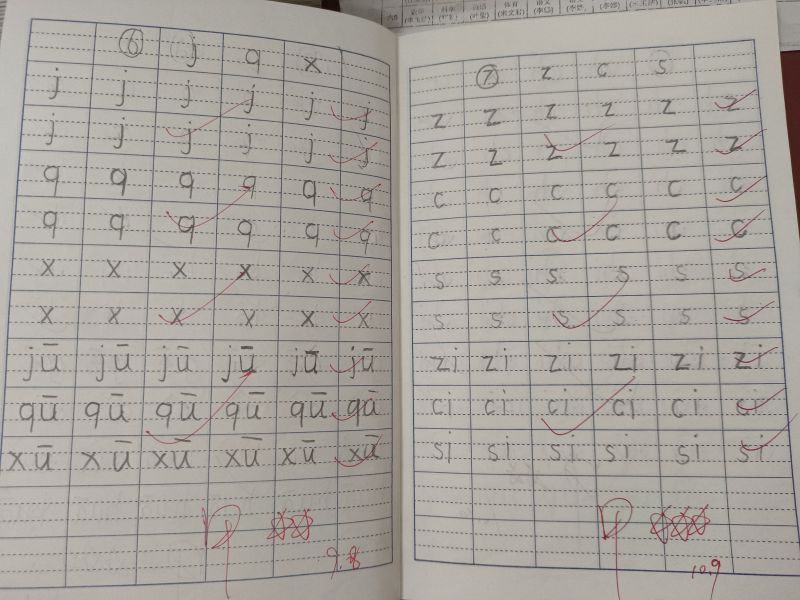 ⑥ j q x
j j j j j j
j j j j j j
q q q q q q
q q q q q q
x x x x x x
x x x x x x
jū jū jū jū jū jū
qū qū qū qū qū qū
xū xū xū xū xū xū
9.8
⑦ z c s
z z z z z z
z z z z z z
c c c c c c
c c c c c c
s s s s s s
s s s s s s
zi zi zi zi zi zi
ci ci ci ci ci ci
si si si si si si
10.9